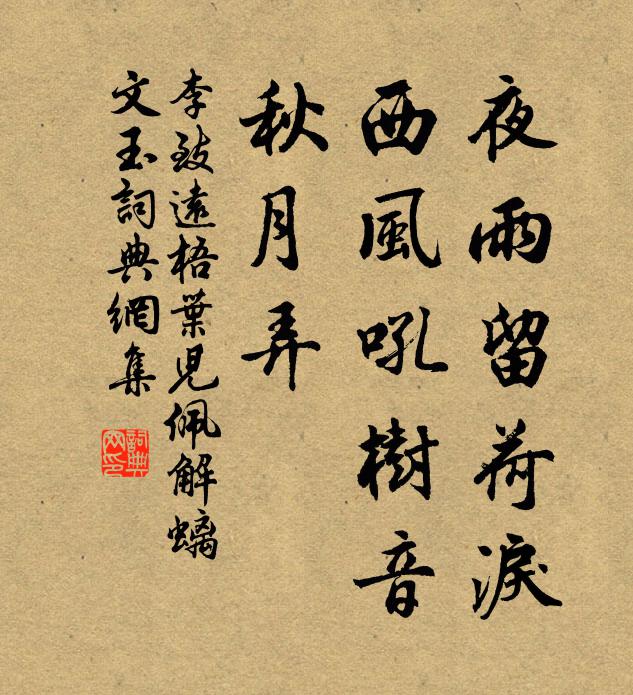 夜雨留荷淚
西風吼樹音
秋月弄
李致遠梧葉児佩解螭
文玉詞典網集
詞典
网印